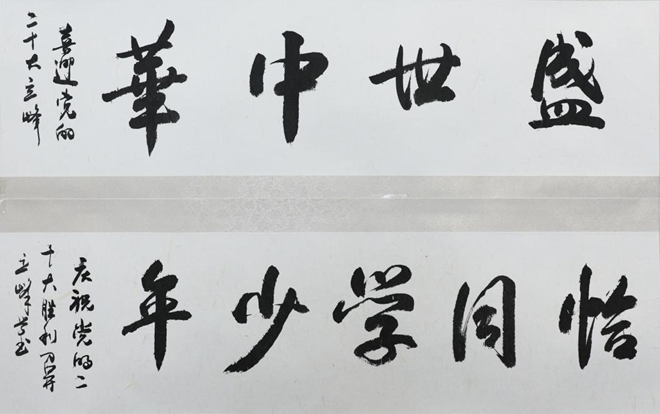 盛世中華
喜迎党的
二十大立峰
恰同学少年
庆祝党的二
十大胜利召开
立峰